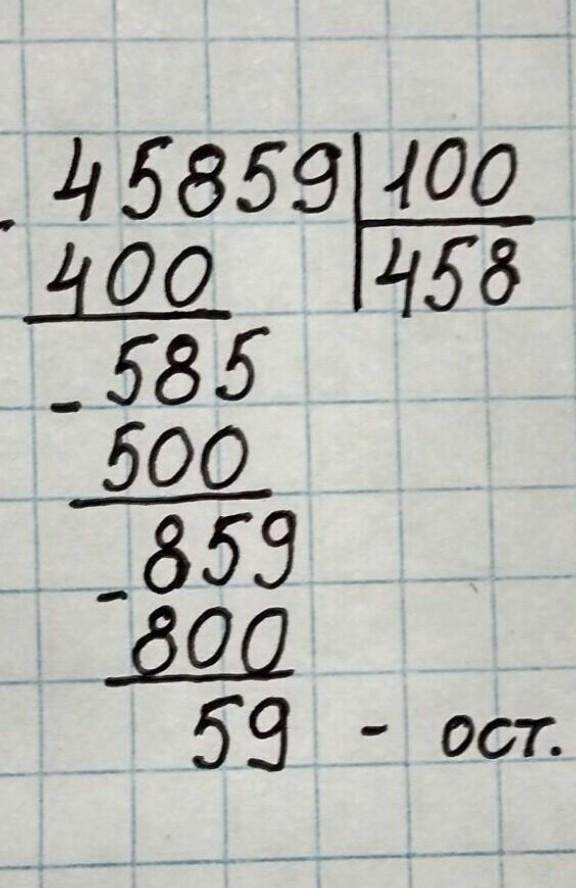 - 45859 | 100
400 | 458
- 585
500
- 859
800
59 - ост.